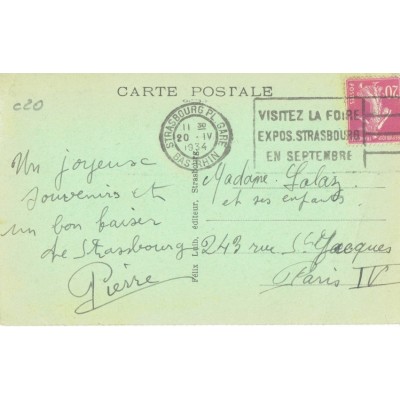 CARTE POSTALE
c20
STRASBOURG PL. GARE
11 30
20 · IV
1934
BAS-RHIN
VISITEZ LA FOIRE
EXPOS. STRASBOURG
EN SEPTEMBRE
20c
POSTES
Un joyeux
souvenirs et
un bon baiser
de Strasbourg
Pierre
Félix Luib, éditeur, Strasbourg
Madame Salaz
et ses enfants
243 rue St Jacques
Paris IV